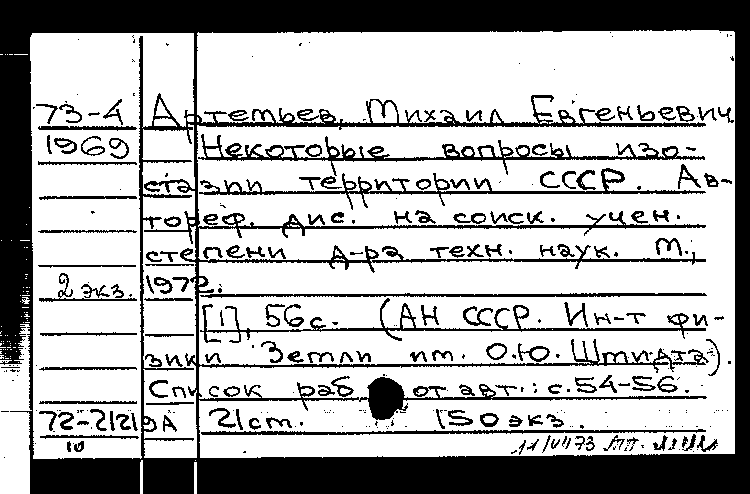 73-4 Артемьев, Михаил Евгеньевич
1969 Некоторые вопросы изо-
стазии территории СССР. Ав-
тореф. дис. на соиск. учен.
степени д-ра техн. наук. М.,
2 экз. 1972.
[1], 56 с. (АН СССР. Ин-т фи-
зики Земли им. О.Ю. Шмидта).
Список раб от авт.: с. 54-56.
72-21219А 21 ст. 150 экз.
10